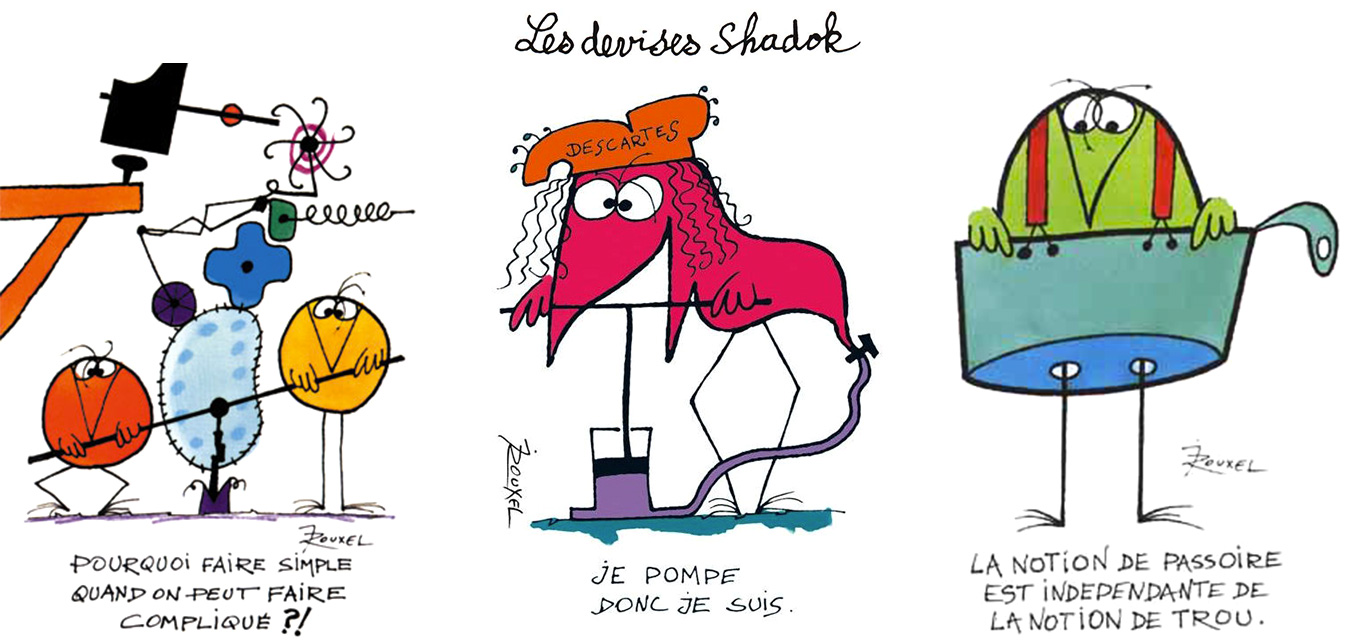 Les devises Shadok
POURQUOI FAIRE SIMPLE
QUAND ON PEUT FAIRE
COMPLIQUÉ ?!
ROUXEL
DESCARTES
ROUXEL
JE POMPE
DONC JE SUIS.
ROUXEL
LA NOTION DE PASSOIRE
EST INDEPENDANTE DE
LA NOTION DE TROU.